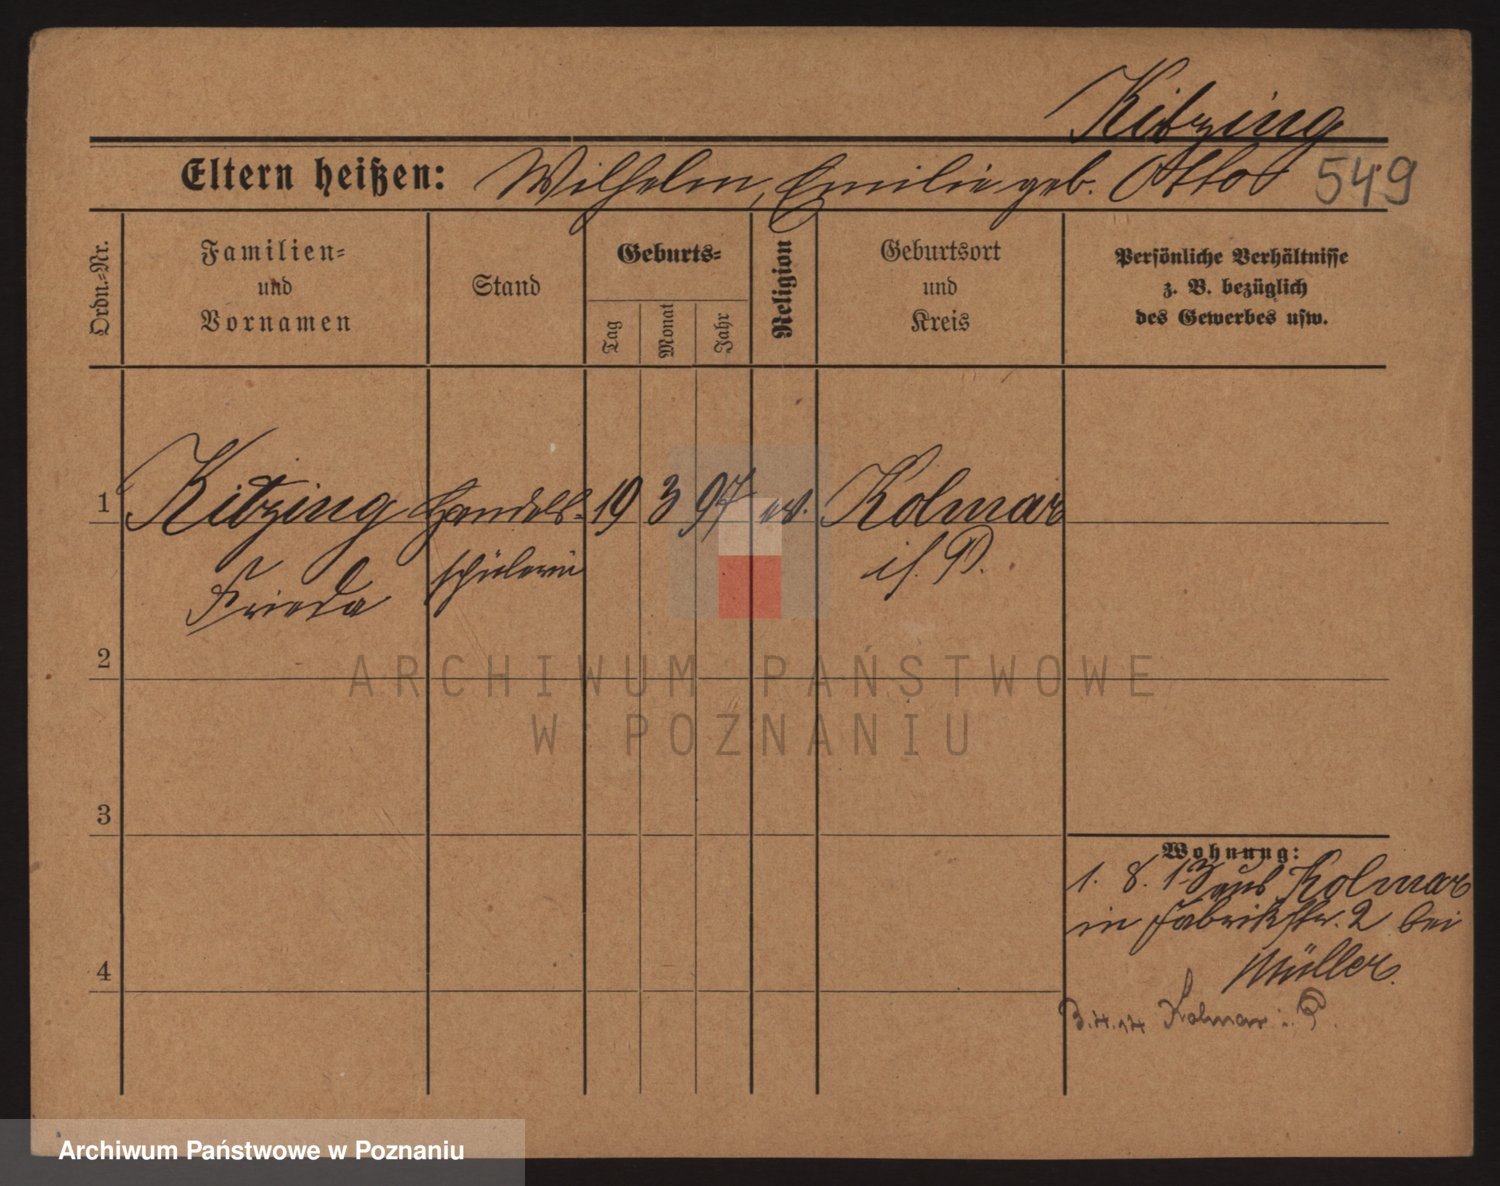 Kitzing
Eltern heißen: Wilhelm, Emilie geb. Otto 549
Ordn.-Nr.
Familien-
und
Vornamen
Stand
Geburts-
Tag
Monat
Jahr
Religion
Geburtsort
und
Kreis
Persönliche Verhältnisse
z. B. bezüglich
des Gewerbes usw.
1 Kitzing Handels- 19 3 97 ev. Kolmar
Frieda schülerin i/. P.
2
3
4
Wohnung:
1. 8. 13 aus Kolmar
in Fabrikstr. 2 bei
Müller.
3.4.14 Kolmar i. P.
ARCHIWUM PAŃSTWOWE
W POZNANIU
Archiwum Państwowe w Poznaniu